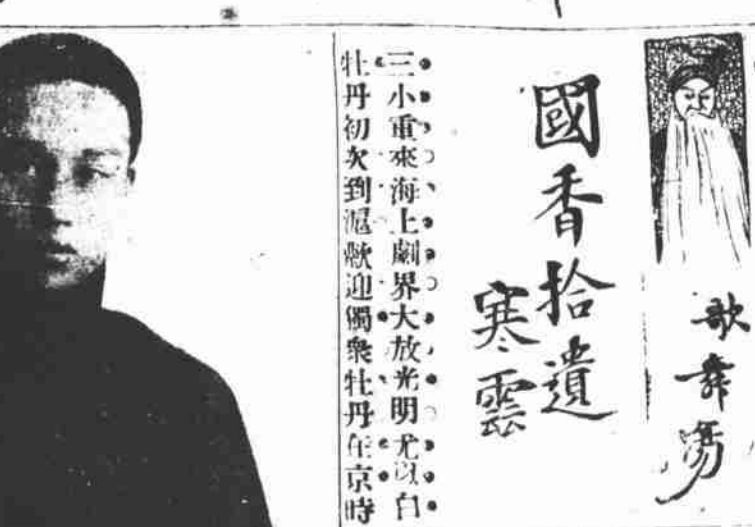 歌舞場
國香拾遺
寒雲
三小重來海上劇界大放光明尤以白
牡丹初次到滬歡迎獨衆牡丹在京時